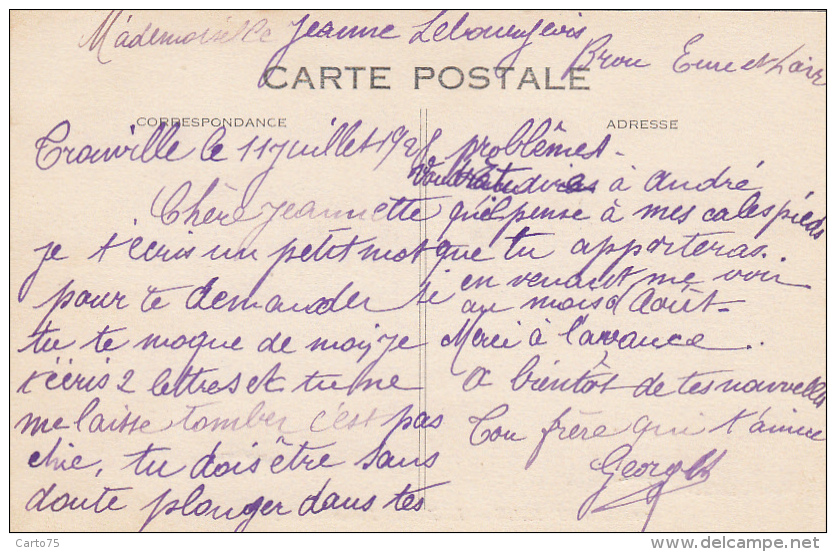 Mademoiselle Jeanne Lebourgeois
Brou Eure et Loir
CARTE POSTALE
CORRESPONDANCE
ADRESSE
Trouville le 11 juillet 192
Chère Jeannette
je t'écris un petit mot
pour te demander si
tu te moque de moi, je
t'écris 2 lettres et tu ne
me laisse tomber c'est pas
chic, tu dois être sans
doute plonger dans tes
problèmes.
à André
qu'il pense à mes cales pieds
que tu apporteras.
en venant me voir
au mois d'Août.
Merci à l'avance.
A bientôt de tes nouvelles
Ton frère qui t'aime
Georges
Cato75
© www.delcampe.net